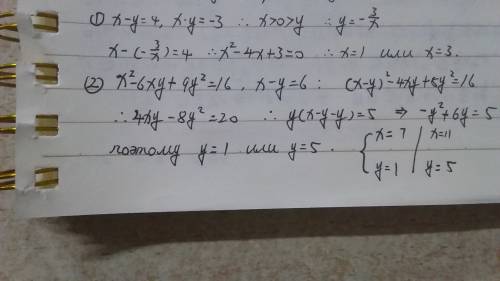 ① x-y=4, x·y=-3 ∴ x>0>y ∴ y=-3/x
x-(-3/x)=4 ∴ x²-4x+3=0 ∴ x=1 или x=3.
② x²-6xy+9y²=16, x-y=6: (x-y)²-4xy+8y²=16
∴ 4xy-8y²=20 ∴ y(x-y-y)=5 ⇒ -y²+6y=5
поэтому y=1 или y=5. { x=7 | x=11
y=1 | y=5